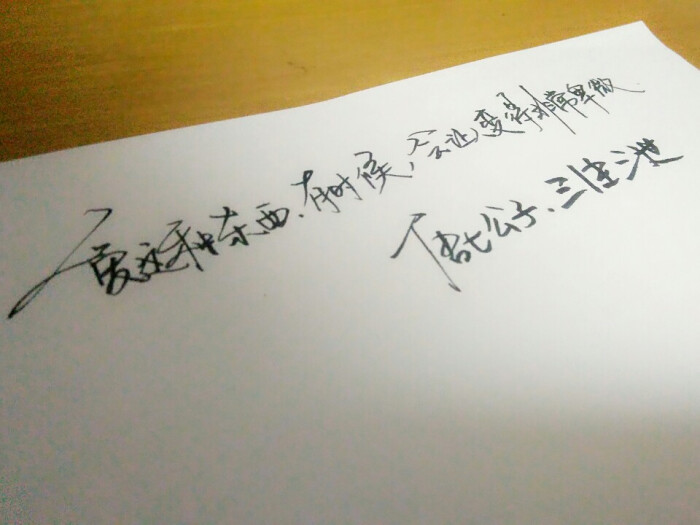 爱这种东西.有时候,会让变得非常卑微
唐七公子.三生三世